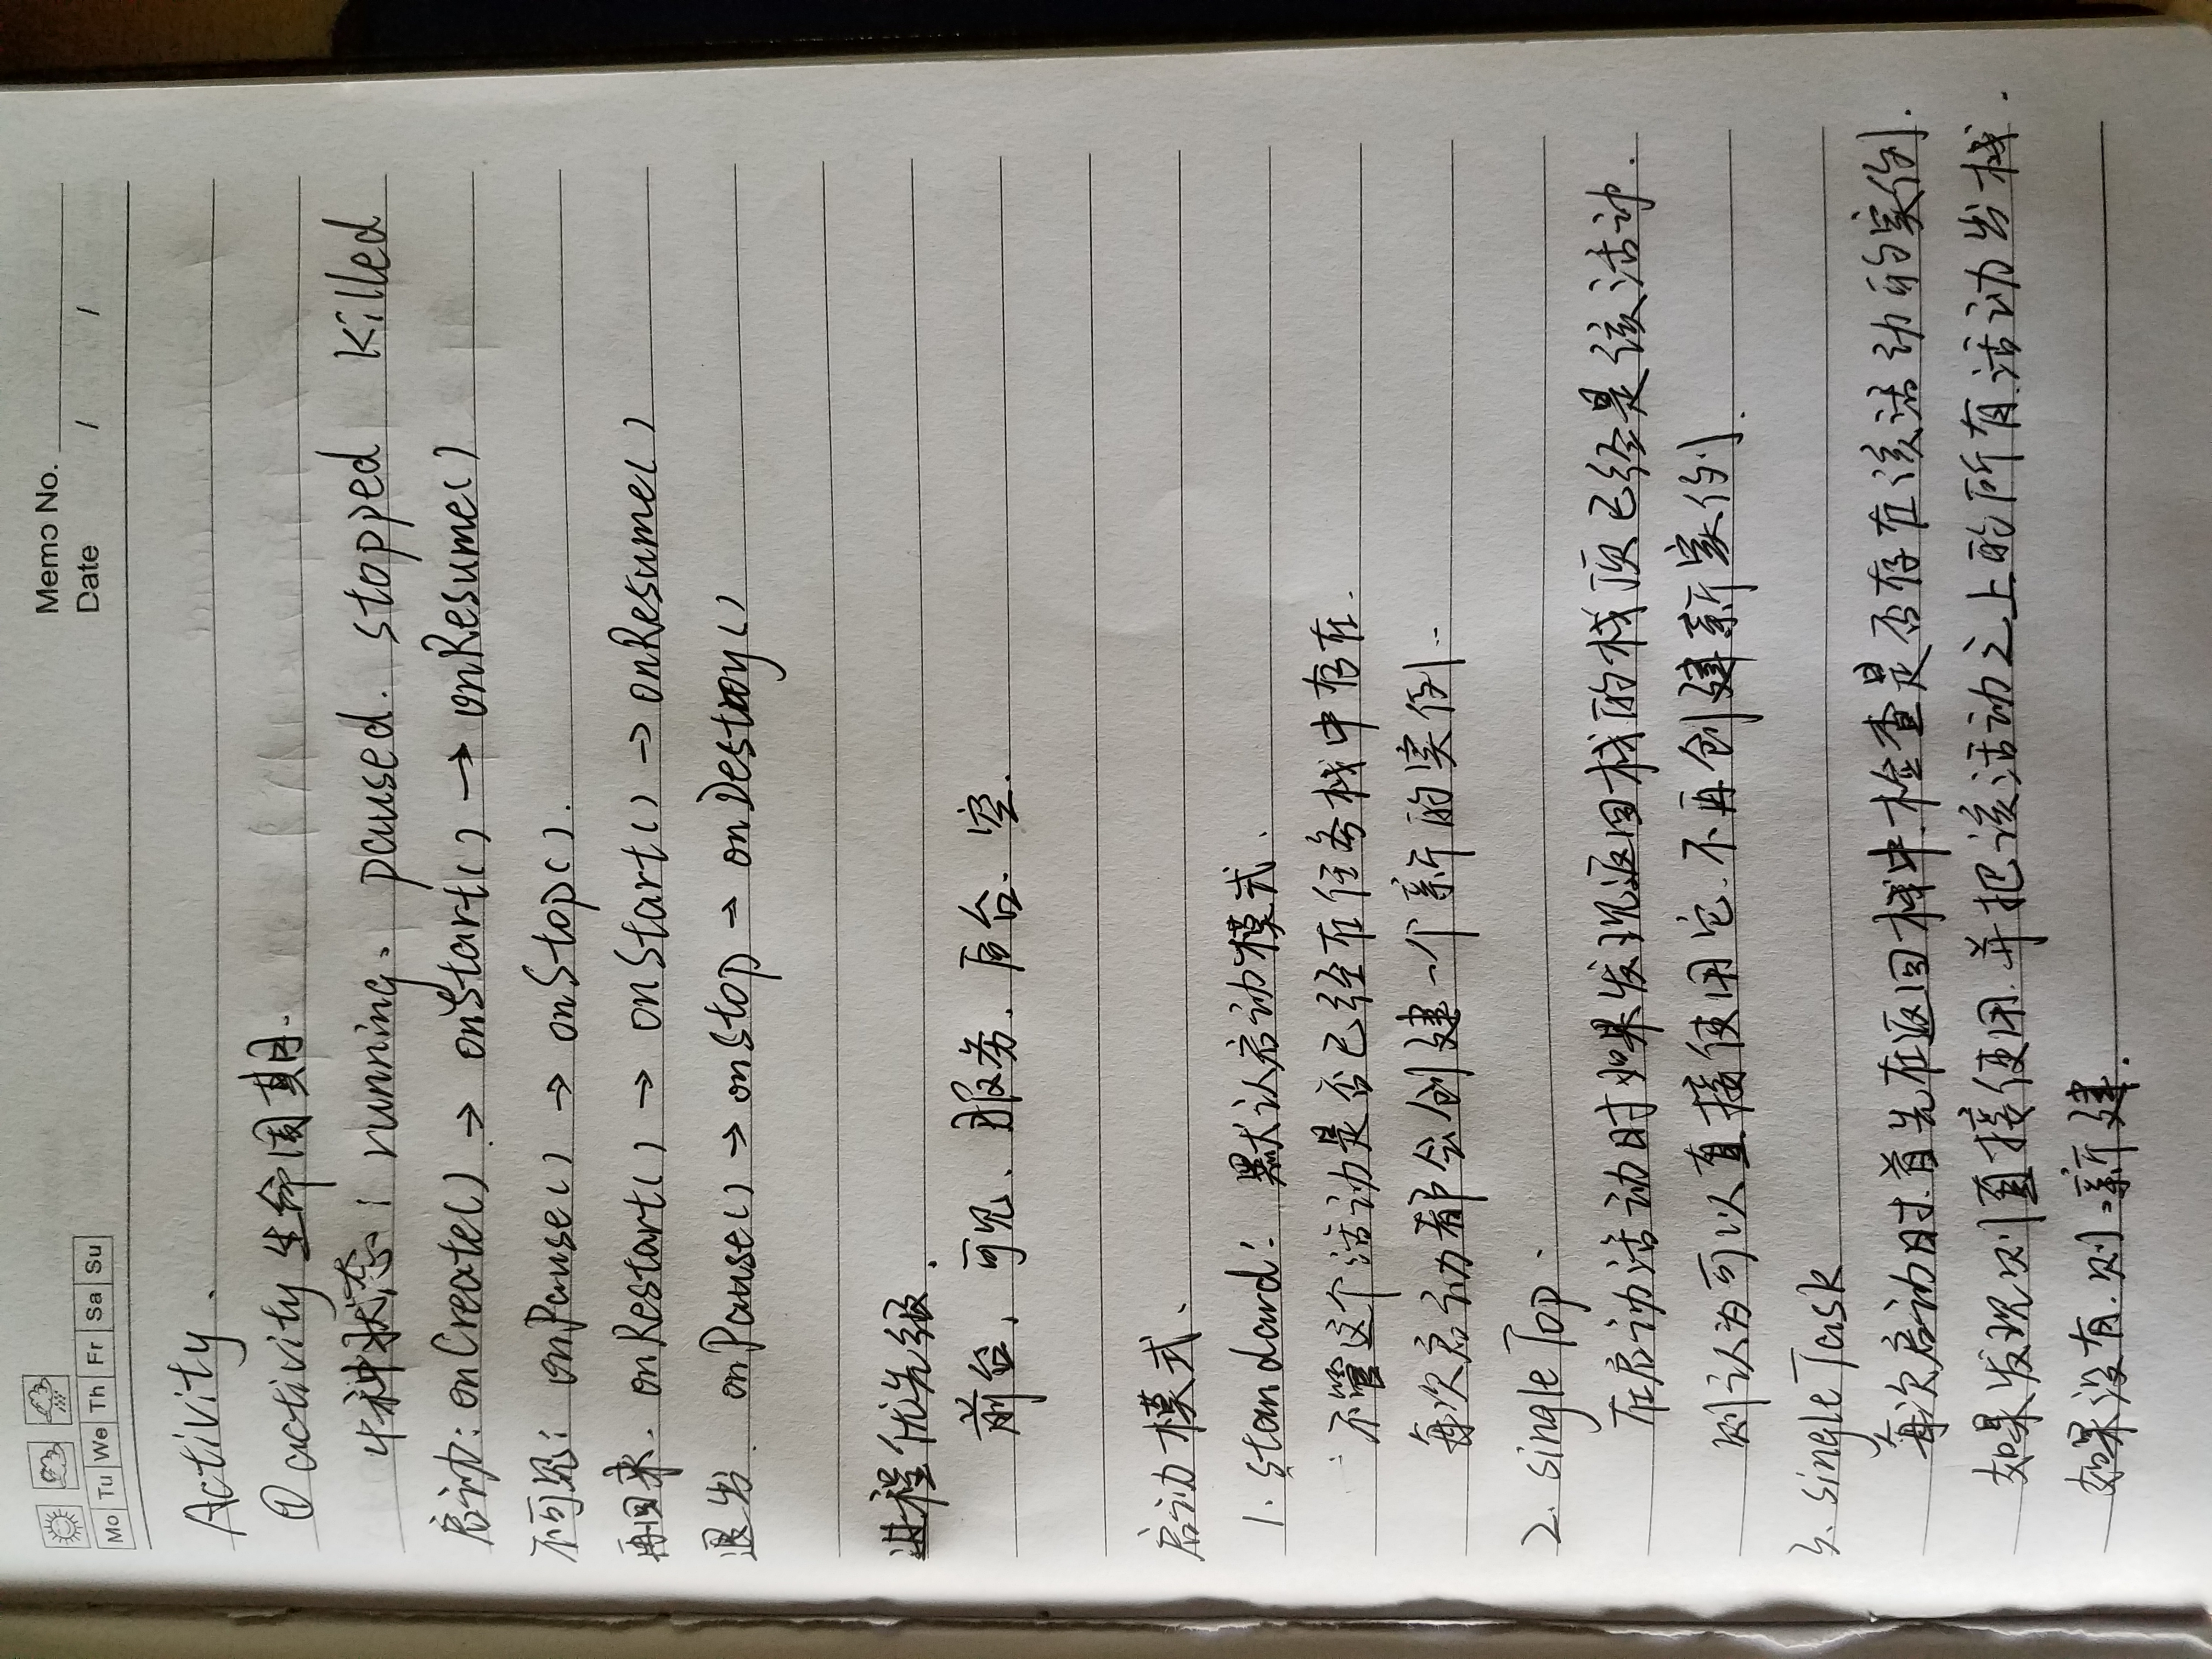 Memo No.
Date / /
Mo Tu We Th Fr Sa Su
Activity.
① activity 生命周期.
4种状态: running、 paused. stopped killed
启动: onCreate() → onStart() → onResume()
不可见: onPause() → onStop().
再回来. onRestart() → onStart() → onResume()
退出. onPause() → onStop → onDestroy()
进程优先级.
前台, 可见、服务、后台、空.
启动模式、
1. standard: 默认启动模式.
不管这个活动是否已经在任务栈中存在.
每次启动都会创建一个新的实例..
2. singleTop.
在启动活动时如果发现返回栈的栈顶已经是该活动.
则认为可以直接使用它.不再创建新实例.
3. singleTask
每次启动时.首先在返回栈中.检查是否存在该活动的实例.
如果发现则直接使用.并把该活动之上的所有.活动出栈.
如果没有.则.新建.